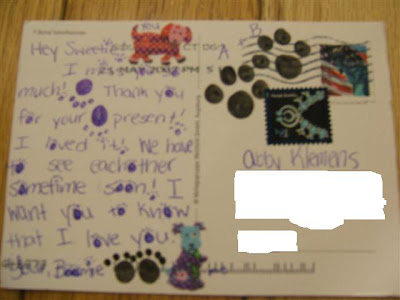 you
B
A
Hey Sweetie
I miss you so
much! Thank you
for your present!
I loved it! We have
to see eachother
sometime soon! I
want you to know
that I love you.
Abby Klemens